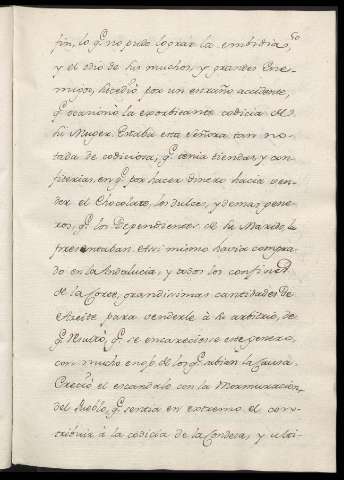 50
fin, lo q.e no pudo lograr la embidia,
y el odio de sus muchos, y grandes Ene-
migos, sucedió por un extraño accidente,
q.e ocasionó la exorbitante codicia de
su Muger. Estaba esta Señora tan no-
tada de codiciosa, q.e tenia tiendas, y con-
fiterias, en q.e por hacer dinero hacia ven-
der el Chocolate, los dulces, y demas gene-
ros, q.e los Dependientes de su Marido, la
presentaban. Asi mismo havia compra-
do en la Andalucia, y todos los confines
de la Corte, grandisimas cantidades de
Azeite para venderle à su arbitrio, de
q.e resultó, q.e se encareciese este genero,
con mucho enojo de los q.e sabian la Causa.
Creció el escandalo con la Murmuracion,
del Pueblo, q.e sentia en extremo el con-
tribuir à la codicia de la Condesa, y ulti-